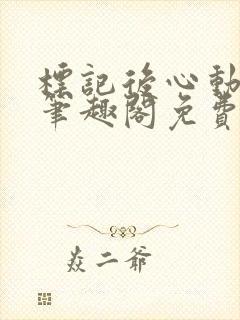 標記後心動
筆趣閣免費
焱二爺